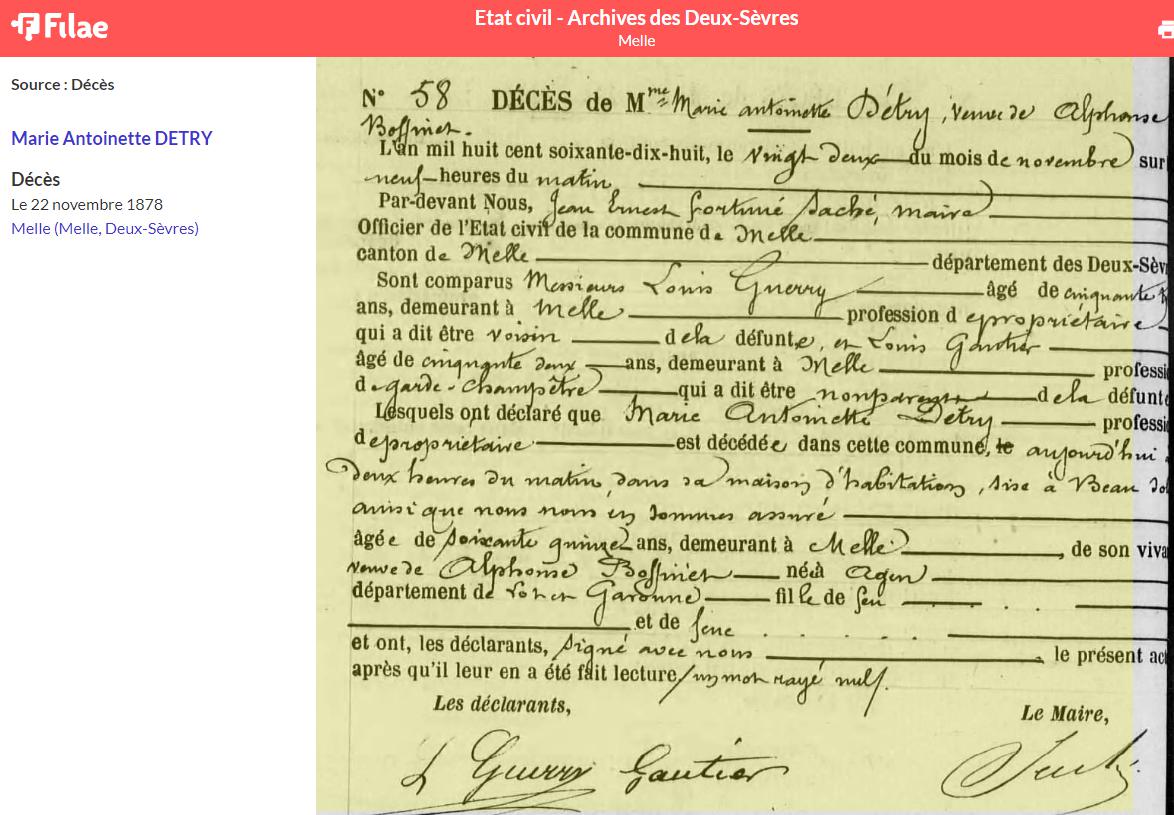 Filae
Etat civil - Archives des Deux-Sèvres
Melle
Source : Décès
Marie Antoinette DETRY
Décès
Le 22 novembre 1878
Melle (Melle, Deux-Sèvres)
N° 58 DÉCÈS de Mme Marie antoinette Détry, veuve de Alphonse
Boffinet.
L'an mil huit cent soixante-dix-huit, le vingt deux du mois de novembre sur
neuf heures du matin
Par-devant Nous, Jean Ernest fortuné Saché, maire
Officier de l'Etat civil de la commune de Melle
canton de Melle département des Deux-Sèv
Sont comparus Messieurs Louis Guerry âgé de cinquante
ans, demeurant à Melle profession de propriétaire
qui a dit être voisin de la défunte, et Louis Gautier
âgé de cinquante deux ans, demeurant à Melle professi
de garde-champêtre qui a dit être non parent de la défunt
Lesquels ont déclaré que Marie Antoinette Détry profess
de propriétaire est décédée dans cette commune, le aujourd'hui
deux heures du matin, dans sa maison d'habitation, sise à Beau
ainsi que nous nous en sommes assuré
âgée de soixante quinze ans, demeurant à Melle, de son viva
veuve de Alphonse Boffinet née à Agen
département de Lot et Garonne fille de feu
et de feue
et ont, les déclarants, signé avec nous le présent act
après qu'il leur en a été fait lecture / un mot rayé nul /.
Les déclarants,
Le Maire,
L Guerry Gautier